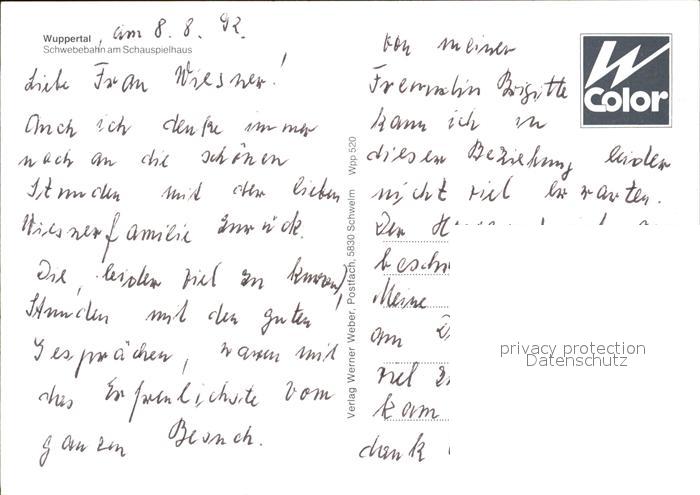 Wuppertal, am 8. 8. 92.
Schwebebahn am Schauspielhaus
Liebe Frau Wiesner!
Auch ich denke immer
noch an die schönen
Stunden mit der lieben
Wiesnerfamilie zurück.
Die, leider viel zu kurzen,
Stunden mit den guten
Gesprächen, waren mit
das Erfreulichste vom
ganzen Besuch.
Verlag Werner Weber, Postfach, 5830 Schwelm Wpp 520
von meiner
Freundin Brigitte
kann ich in
dieser Beziehung leider
nicht viel erwarten.
Der
besch
Meine
am
viel
kam
dank
W Color
privacy protection
Datenschutz